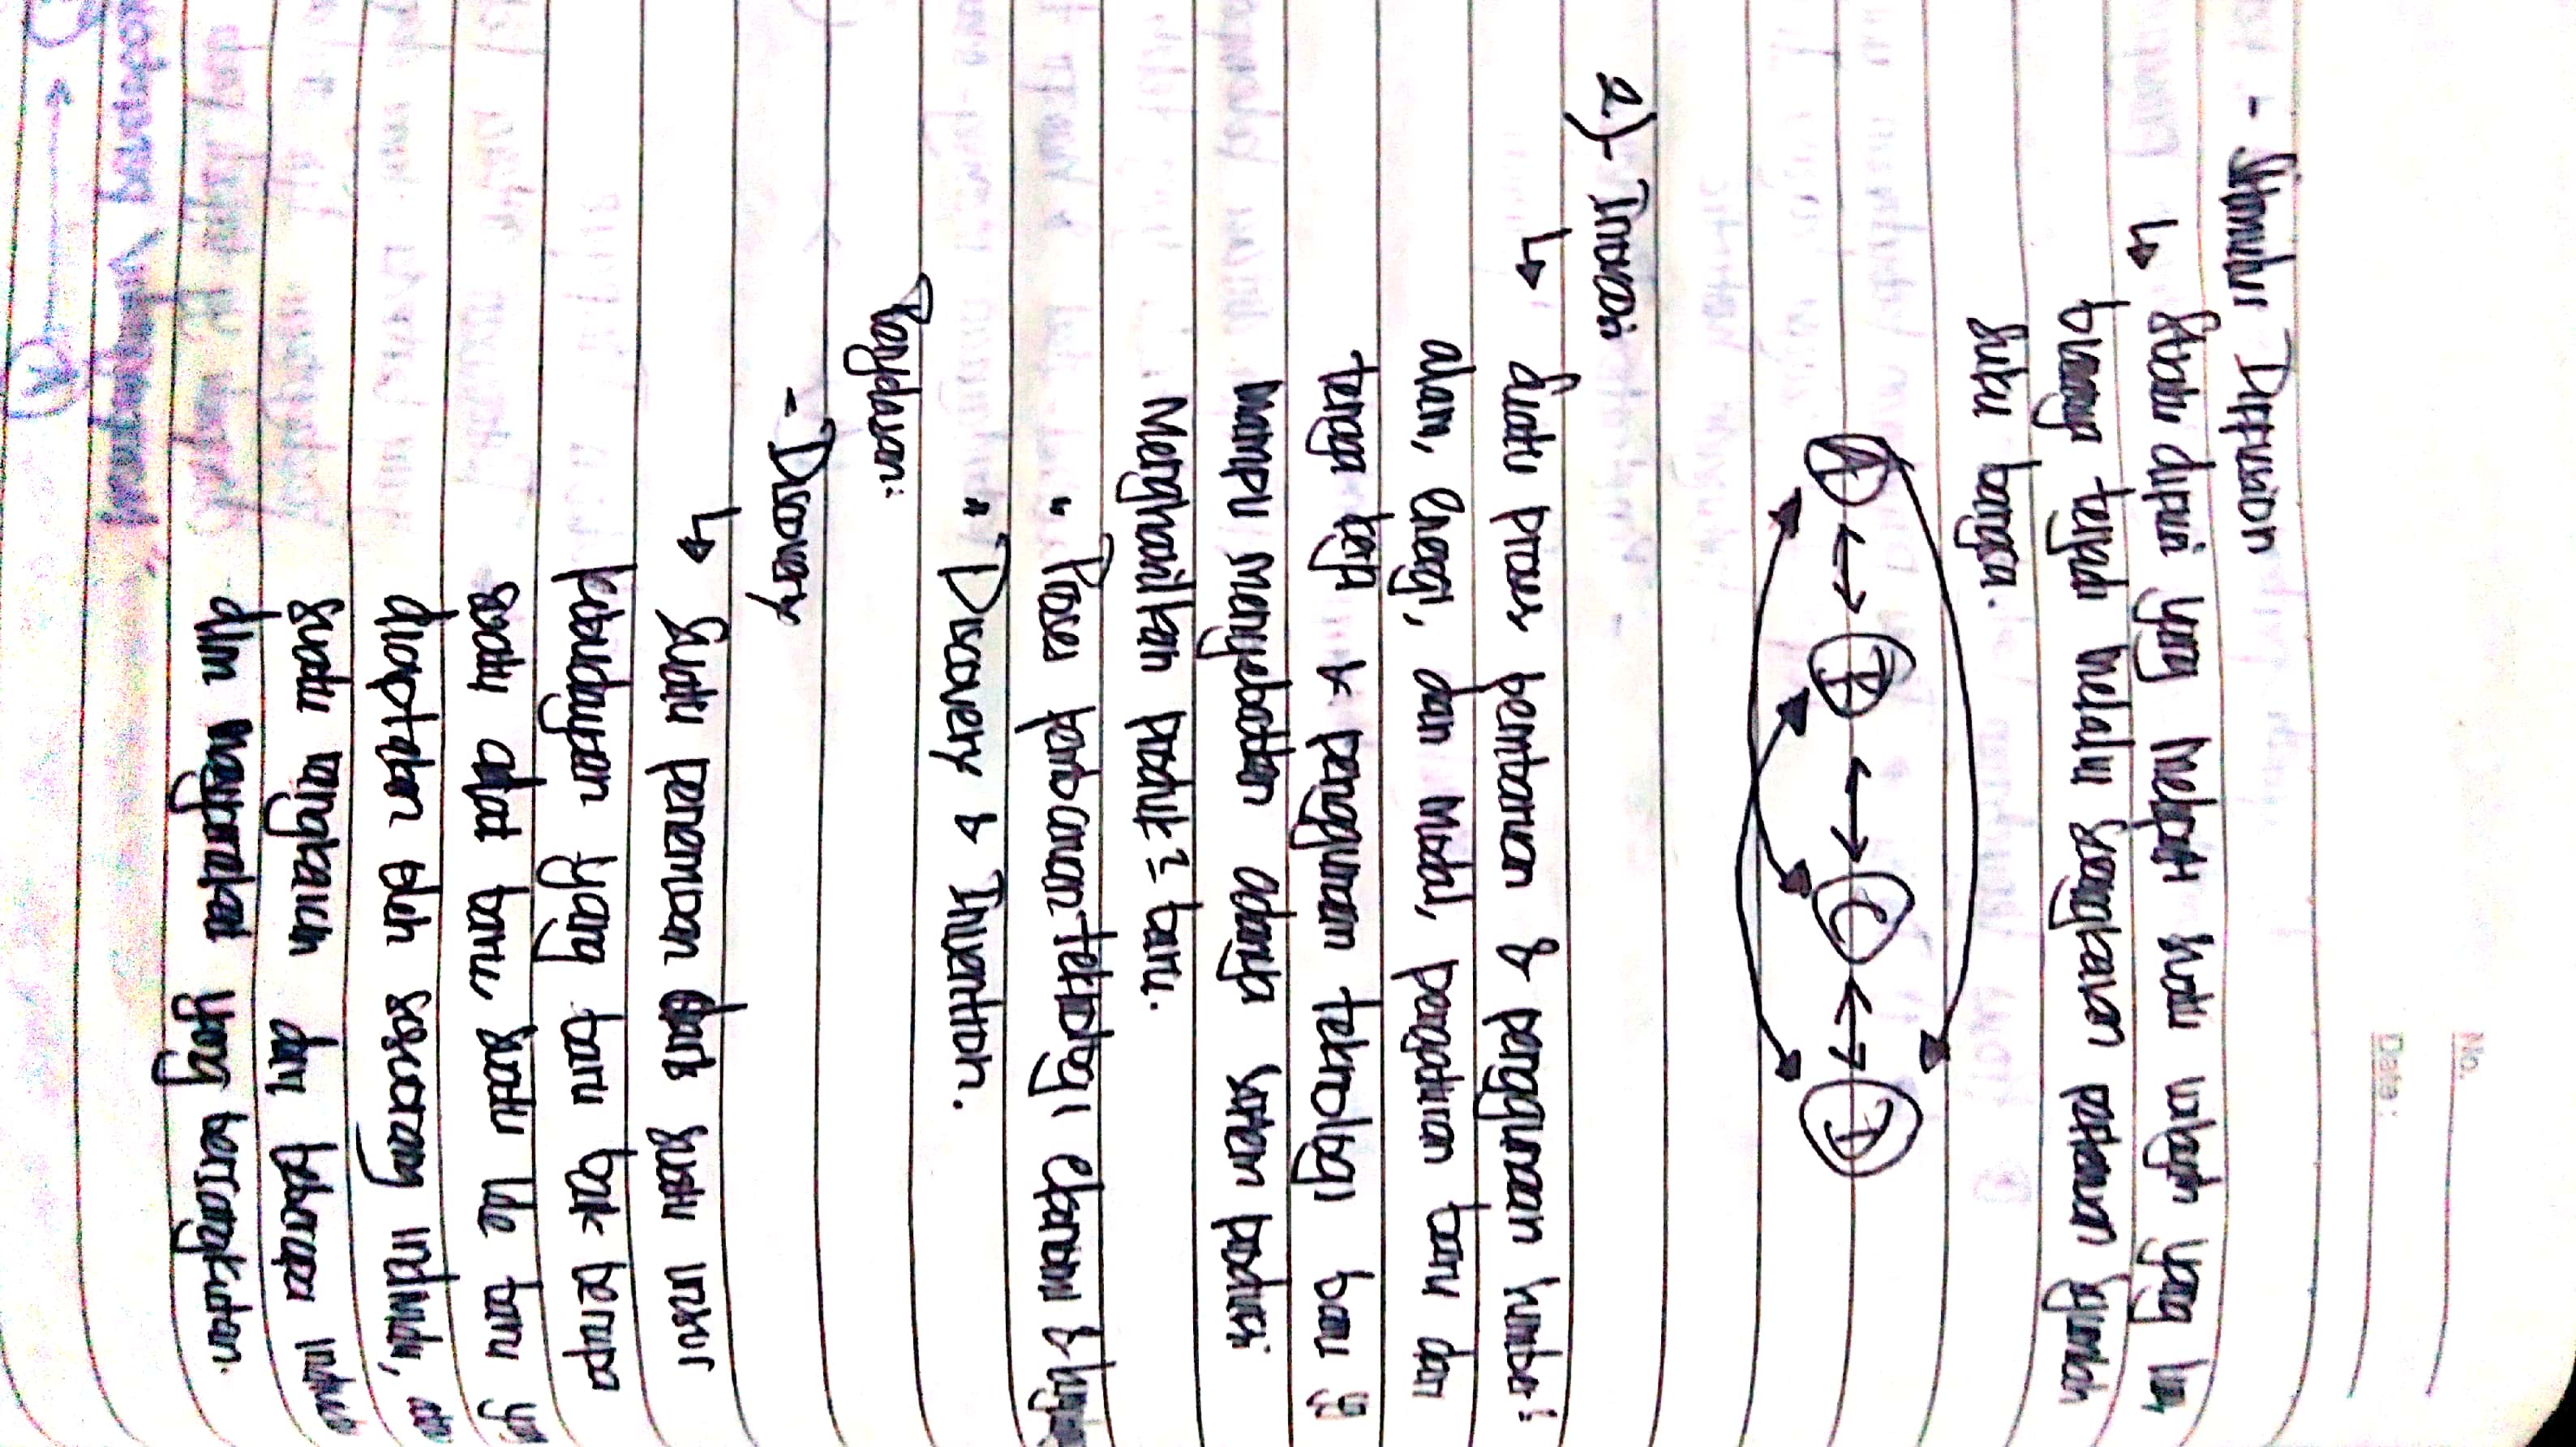 No.
Date:
- Stimuli Diffusion
↳ suatu dipin yang
blanga terjadi melalui serangkaian pertemuan
suku bangsa.
A ↔ B ↔ C ↔ D
2.) - Inovasi
↳ suatu proses pembaruan & penggunaan sumber
alam, energi, dan modal, pengaturan baru dari
tenaga kerja & penggunaan teknologi baru yg
mampu mengadakan adanya sistem produksi
Menghasilkan produk² baru.
" Proses perkembangan teknologi & ekonomi
" Discovery & Invention.
Penjelasan:
- Discovery
↳ suatu penemuan dari suatu unsur
kebudayaan yang baru baik berupa
suatu alat baru, suatu ide baru
diciptakan oleh seseorang individu,
suatu rangkaian dari beberapa
dlm masyarakat yang bersangkutan.